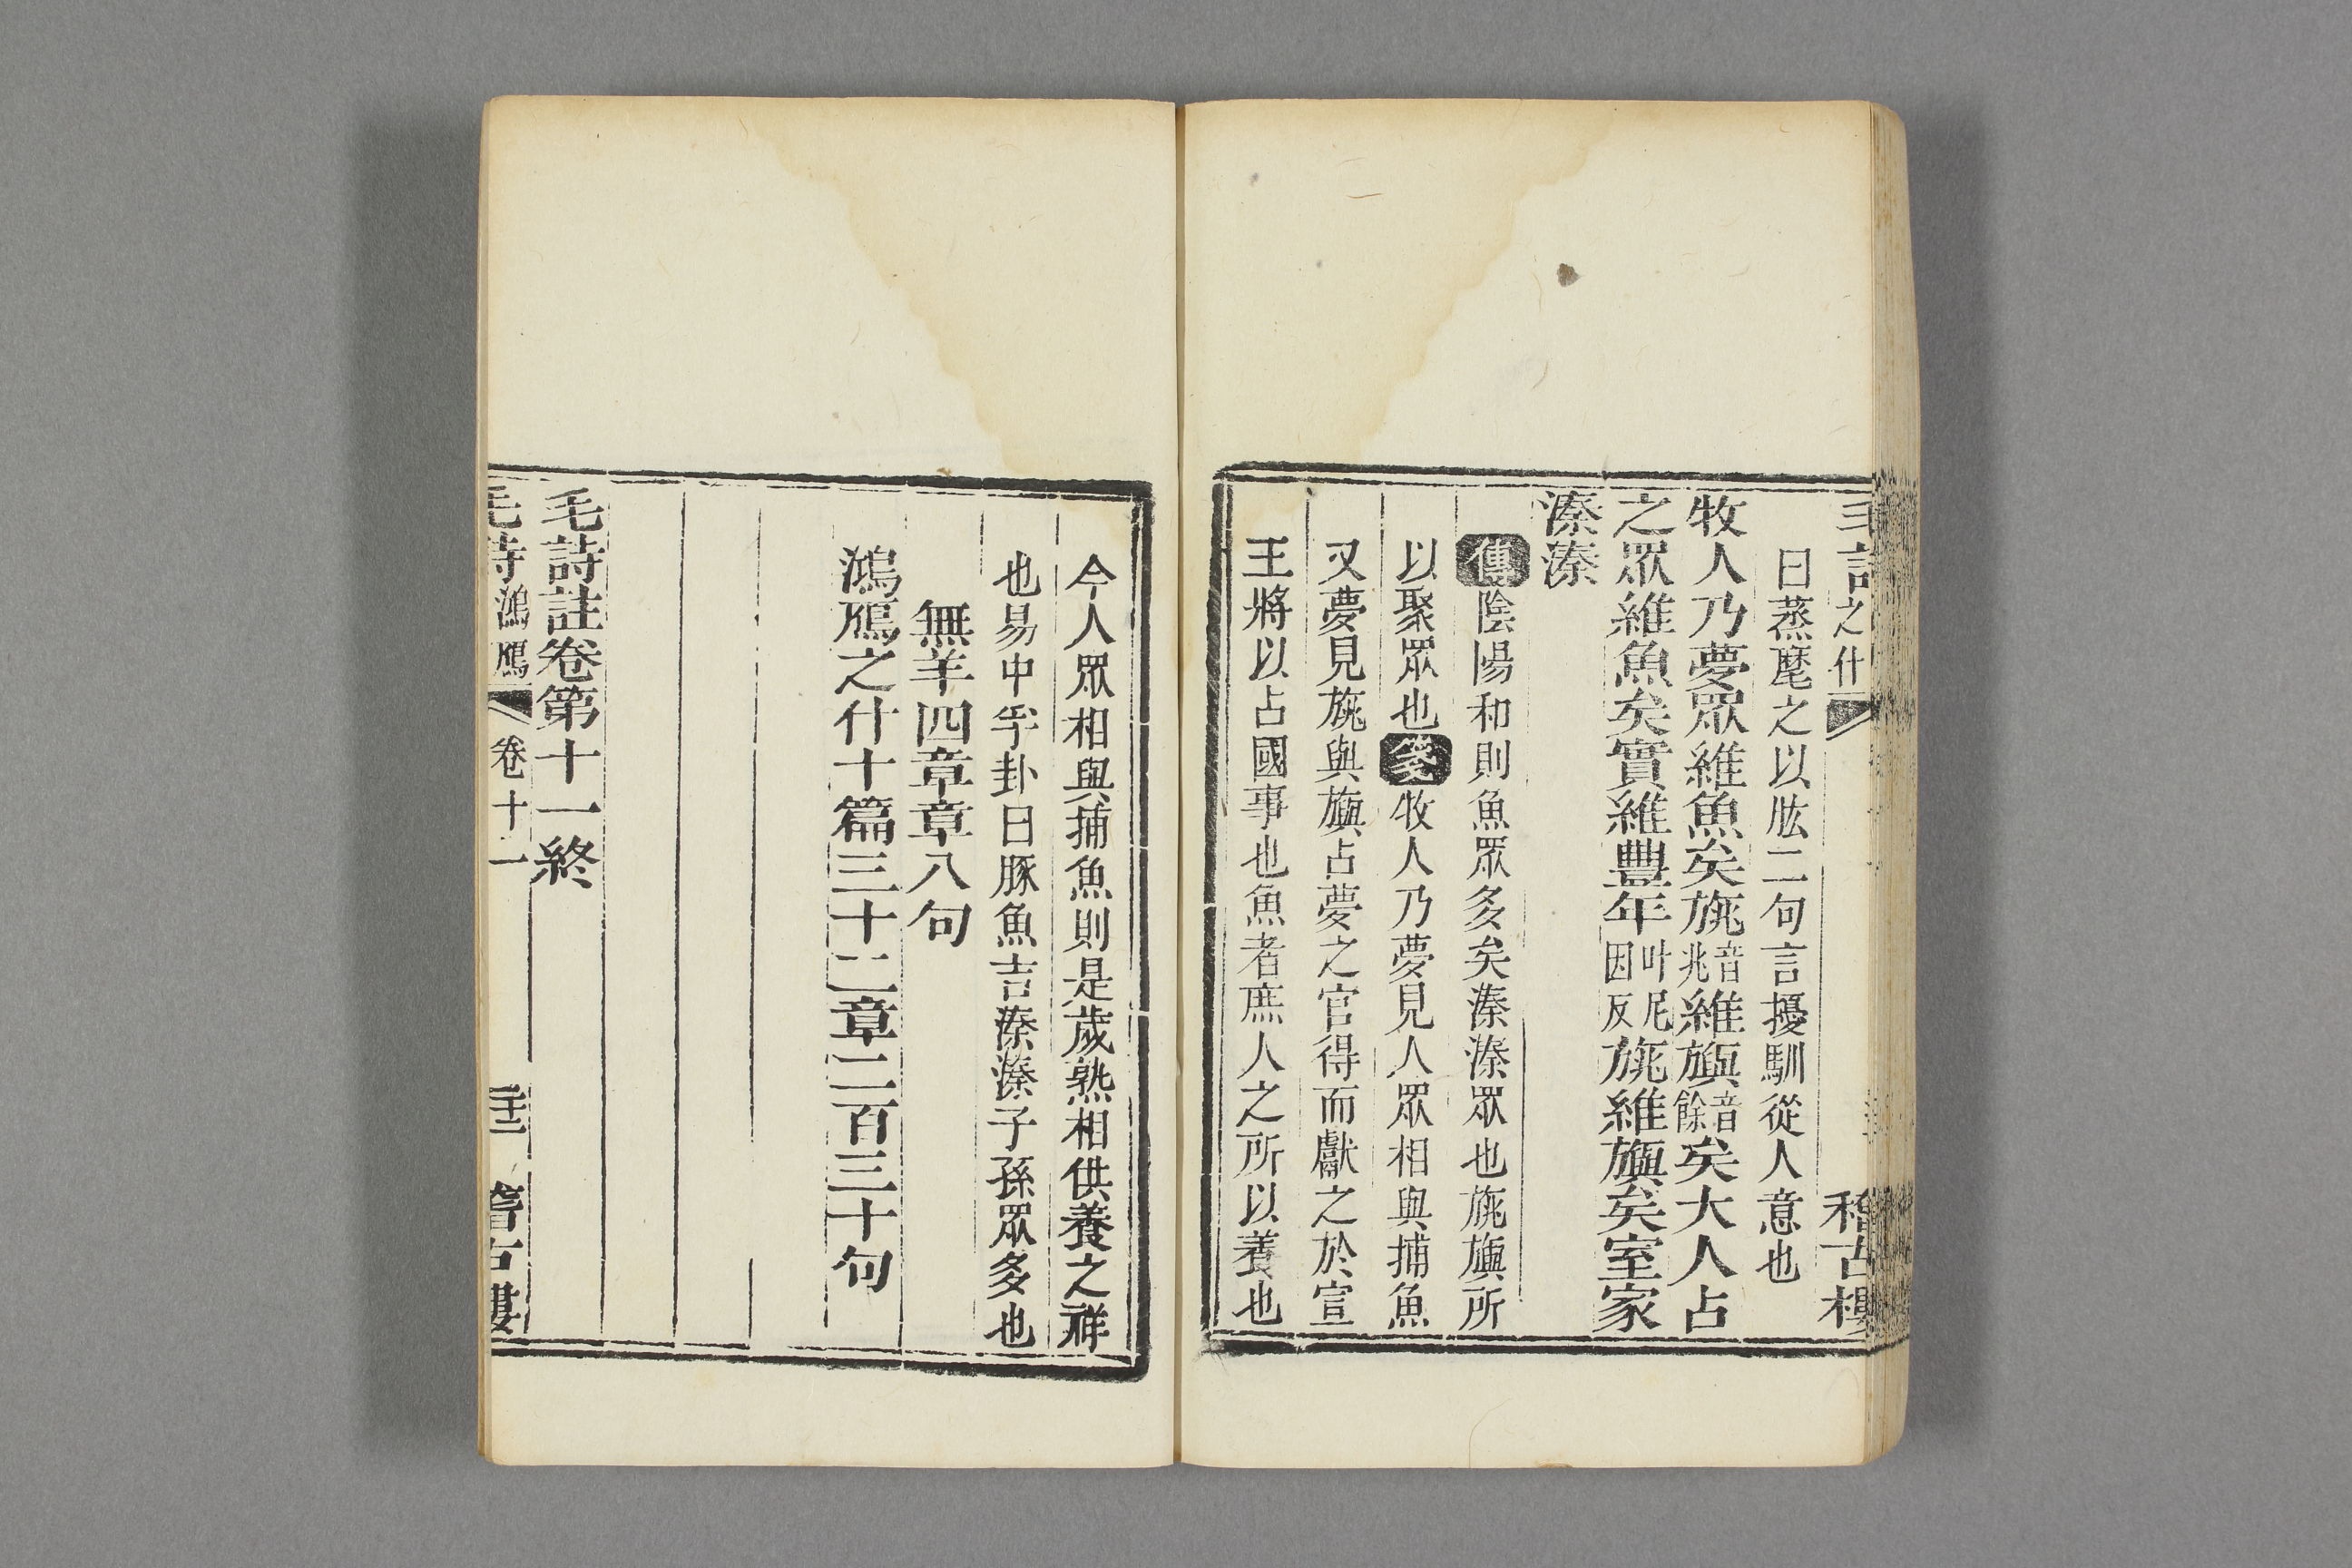 毛詩之什 稽古樓
曰蒸麾之以肱二句言擾馴從人意也
牧人乃夢眾維魚矣旐音兆維旟音餘矣大人占
之眾維魚矣實維豐年叶尼因反旐維旟矣室家
溱溱
傳陰陽和則魚眾多矣溱溱眾也旐旟所
以聚眾也箋牧人乃夢見人眾相與捕魚
又夢見旐與旟占夢之官得而獻之於宣
王將以占國事也魚者庶人之所以養也
今人眾相與捕魚則是歲熟相供養之祥
也易中孚卦曰豚魚吉溱溱子孫眾多也
無羊四章章八句
鴻鴈之什十篇三十二章二百三十句
毛詩註卷第十一終
毛詩鴻鴈 卷十二 稽古樓